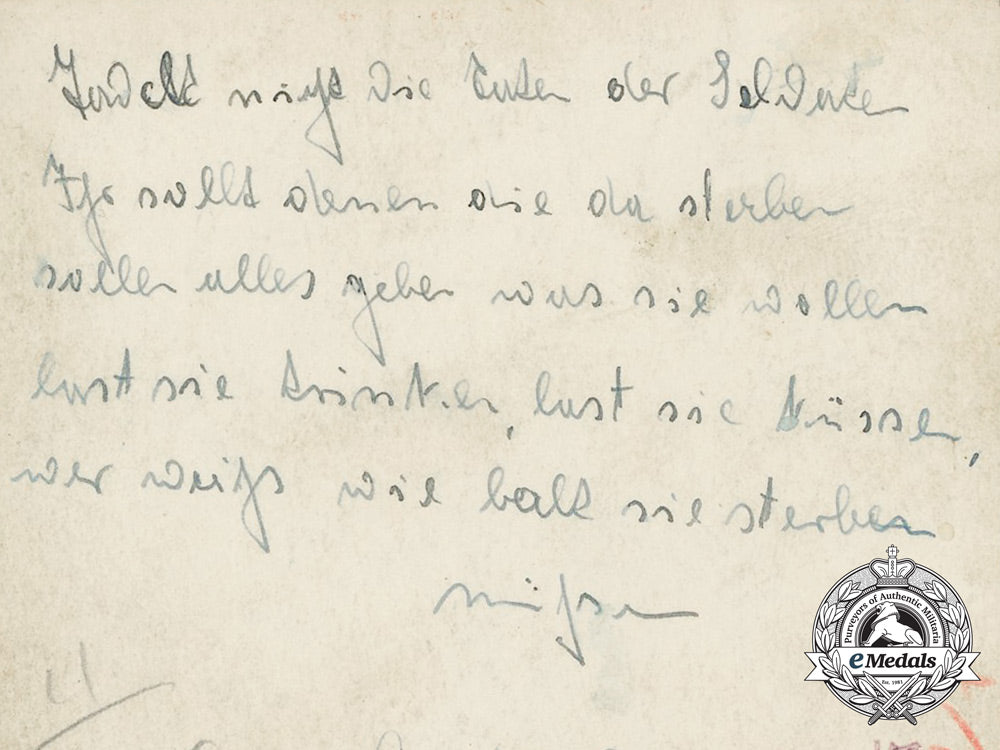 Tadelt nicht die Taten der Soldaten
Ihr sollt denen die da sterben
sollen alles geben was sie wollen
last sie trinken, last sie küssen,
wer weiß wie balt sie sterben
müßen
Purveyors of Authentic Militaria
eMedals
Est. 1981